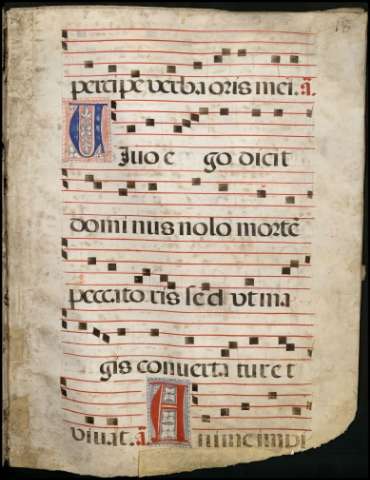 percipe verba oris mei. a̅.
Viuo ego dicit
dominus nolo morte̅
peccatoris sed vt ma
gis conuertatur et
viuat. a̅. Anime impi